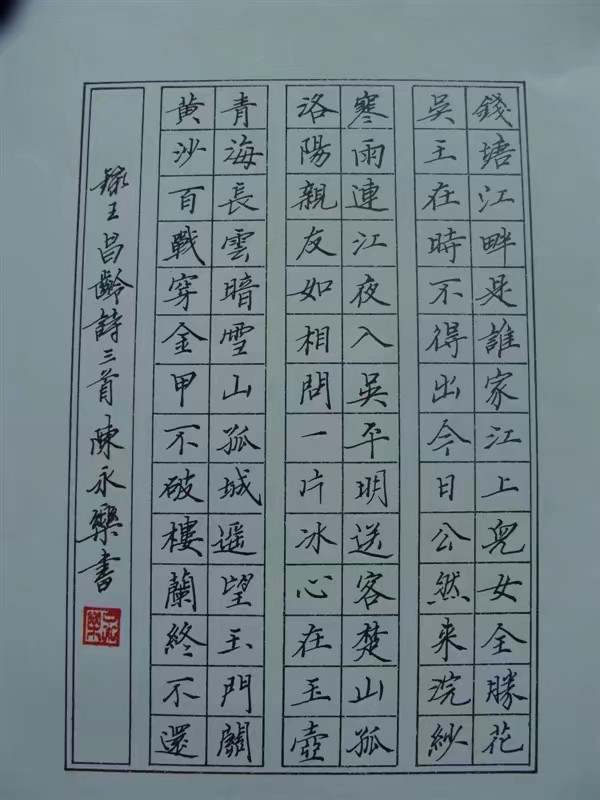 錢塘江畔是誰家江上兒女全勝花
吳王在時不得出今日公然來浣紗
寒雨連江夜入吳平明送客楚山孤
洛陽親友如相問一片冰心在玉壺
青海長雲暗雪山孤城遥望玉門關
黄沙百戰穿金甲不破樓蘭終不還
録王昌齡詩三首陳永樂書